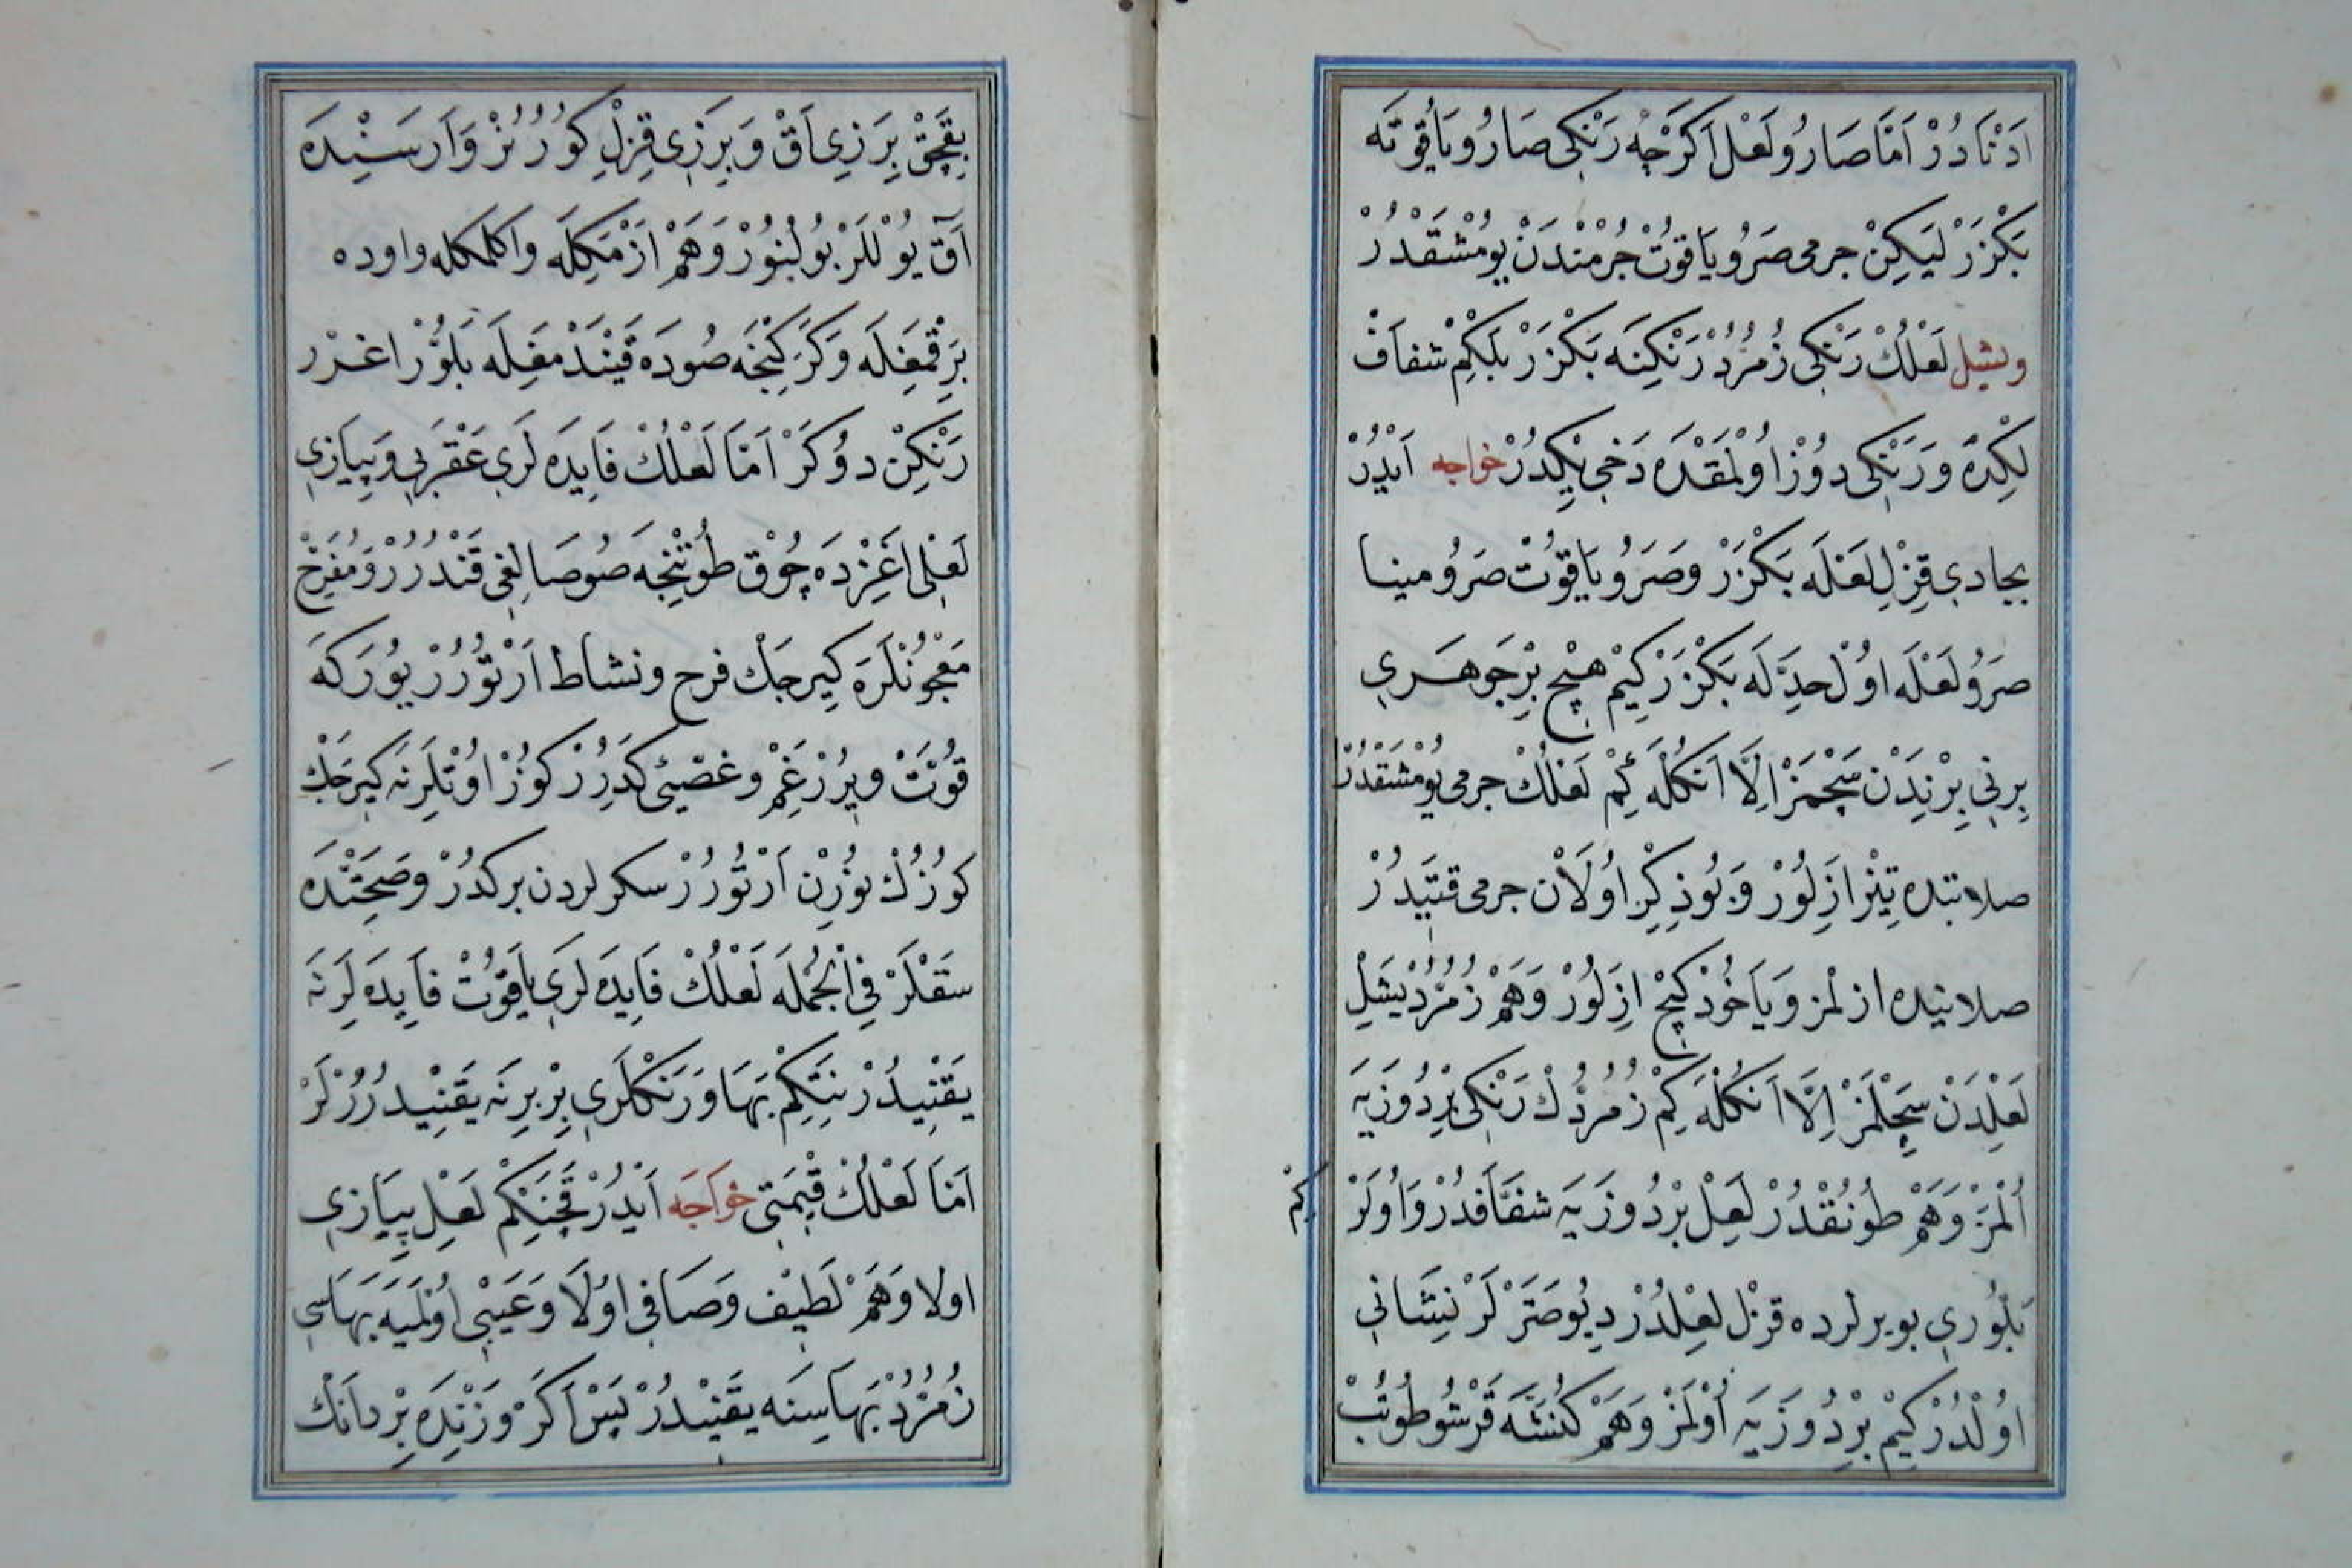 اَدْنَادُرْ اَمَّا صَارُو لَعْل اَكَرْچِه رَنْكِى صَارُو يَاقُوتَه
بَكْزَرْ لَيكِنْ جرمى صَرُو يَاقوُتْ جُرْمِنْدَنْ يُومْشَقْدُرْ
ويشيل لَعْلُكْ رَنْكِى زُمُرُّدْ رَنْكِنَه بَكْزَرْ بَلكِمْ شفافْ
لِكِدَه وَ رَنْكِى دوُزْ اوُلْمَقْدَه دَخِى يِكْدُرْ خواجه اَيْدُرْ
بجادى قِزِل لَعْلَه بَكْزَرْ وصَرُو يَاقوُتْ صَرُو مينا
صَرُو لَعْلَه اوُلْ حدِّلَه بَكْزَرْ كِيمْ هِيْچ بِرْ جَوهَرى
بِرِنِى بِرِنْدَنْ سَچمَزْ اِلَّا اَنُكلَه كِمْ لَعْلُكْ جرمى يُومْشَقْدُرْ
صلابتده تِيْز اَزِلُورْ وَ بُوذِكِرْ اوُلَانْ جرمى قَتِيدُرْ
صلابتده ازلمز وَ يَاخُوذْ كِيچْ اَزِلُورْ وَهَمْ زُمُرُّدْ يَشِلْ
لَعْلدَنْ سَچِلْمَزْ اِلَّا اَنُكلَه كِمْ زُمُرُّدُكْ رَنْكِى بِرْدُوزَيَه
اُلْمَزْ وَهَمْ طُونُقْدُرْ لَعِلْ بِرْدُوزَيَه شفَّافدُرْ وَ اوُلَرْ كِمْ
بَلُّورِى بو يرلرده قزل لعْلِدُرْ دِيُو صَتَرْلَرْ نِشَانِى
اوُلْدُرْ كِيمْ بِرْدُوزَيَه اوُلْمَزْ وَهَمْ كُنَشَه قَرْشُو طُوتُبْ
بِقَچَقْ بِرَزِى اَقْ وَ بِرَزِى قِزِلْ كوُرُنُرْ وَ اَرَسَنْدِه
اَقْ يُوللَرْ بُولُنُورْ وَهَمْ اَزْمَكِلَه واكلمكله واوده
بَرِقْمَغِلَه وَكَرَكِنْجَه صُودَه قَيْنَدْمَغِلَه بَلوُّرْ اغرر
رَنْكِنْ دوُكَرْ اَمَّا لَعْلُكْ فَايِدَه لَرِى عَقْرَبِى وَ پِيَازِى
لَعْلِى اَغِزْدَه چُوْق طُوتِنْجَه صُوصَالِغِى قَنْدُرُرْ وَ مُفَرِّحْ
مَعْجُونْلَرَه كِيرجَكْ فرح ونشاط اَرْتُورُرْ يُورَكَه
قُوَّتْ ويِرُرْ غَمْ وغصّيى كَدَرِرْ كوُزْ اوُتْلَرِنَه كِيرجَكْ
كوُزُكْ نوُرِنْ اَرْتُورُرْ سكرلردن بركدُرْ وصَحِتَّدَه
سَقْلَرْ فِى اْلجُمْلَه لَعْلُكْ فَايِدَه لَرِى يَاقُوتْ فَايِدَه لَرِنَه
يَقِنْيدُرْ نِتَكِمْ بَهَا وَ رَنْكلَرِى بِرْ بِرِنَه يَقِنْيدُرُرْلَرْ
اَمَّا لَعْلُكْ قِيمَتِى خوَاجَه اَيْدُرْ قَچَنْكِمْ لَعِل پِيَازِى
اولا وَهَمْ لَطِيْف وَصَافِى اوُلَا وَعَيبِى اوُلْمَيَه بَهَاسِى
زُمُرُّدْ بَهَاسِنَه يَقِنْيدُرْ پَسْ اَكَرْ وَزنِدَه بِرْ دَانَكْ